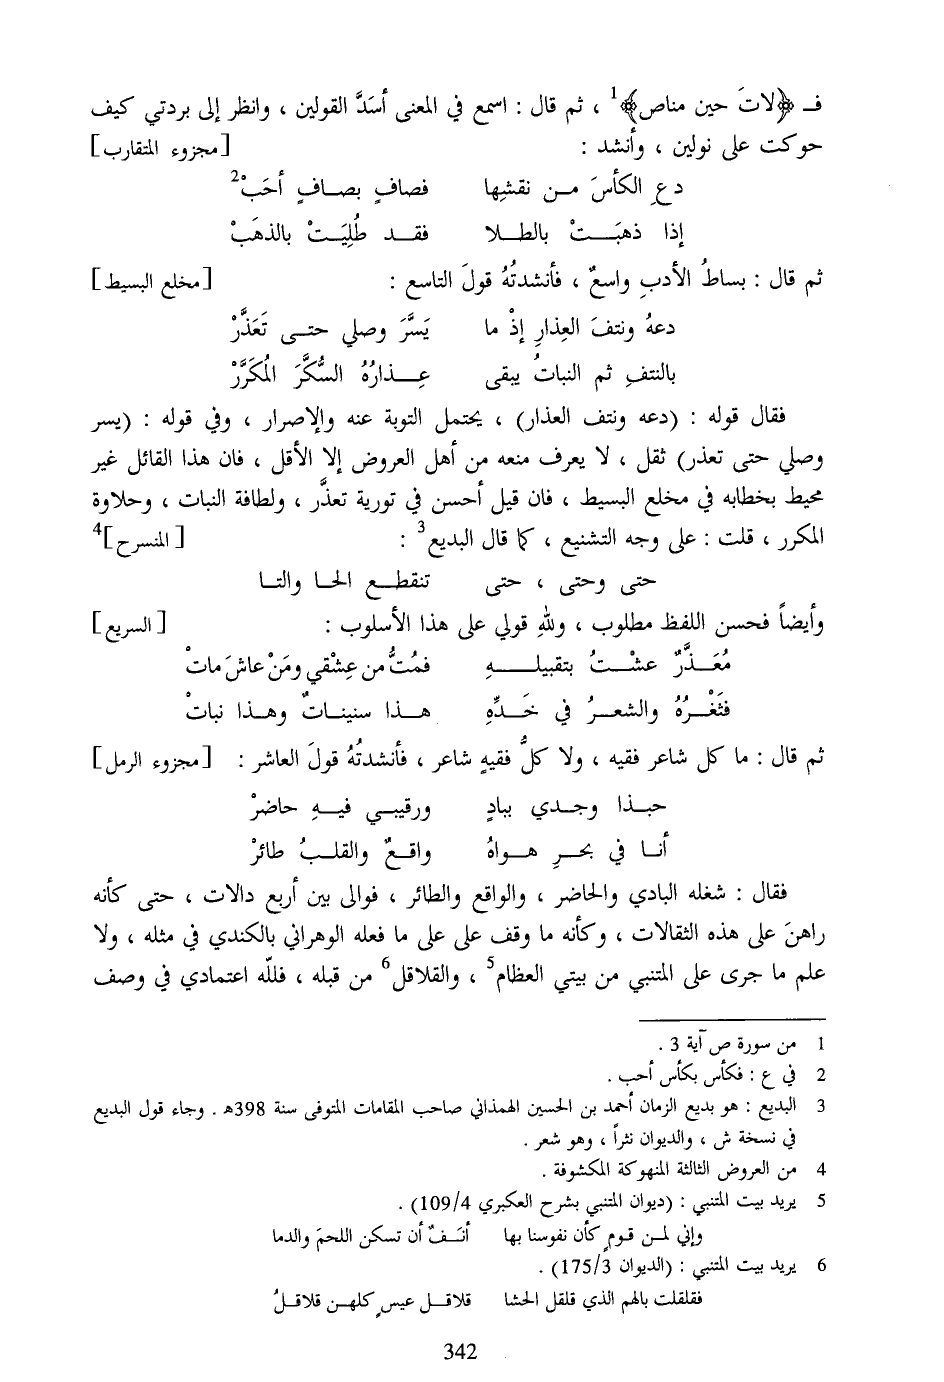 فـ ﴿لاتَ حين مناص﴾1 ، ثم قال : اسمع في المعنى أسَدَّ القولين ، وانظر إلى بردتي كيف
حوكت على نولين ، وأنشد : [مجزوء المتقارب]
دعِ الكأسَ مـن نقشِها فصافٍ بصـافٍ أحَبْ2
إذا ذهبَـتْ بالطـلا فقـد طُلِيَـتْ بالذهَبْ
ثم قال : بساطُ الأدبِ واسعٌ ، فأنشدتُهُ قولَ التاسع : [مخلع البسيط]
دعهُ ونتفَ العِذارِ إذْ ما يَسَّرَ وصلي حتـى تَعَذَّرْ
بالنتفِ ثم النباتُ يبقى عِـذارُهُ السُّكَّرَ المُكَرَّرْ
فقال قوله : (دعه ونتف العذار) ، يحتمل التوبة عنه والإصرار ، وفي قوله : (يسر
وصلي حتى تعذر) ثقل ، لا يعرف منعه من أهل العروض إلا الأقل ، فان هذا القائل غير
محيط بخطابه في مخلع البسيط ، فان قيل أحسن في تورية تعذَّر ، ولطافة النبات ، وحلاوة
المكرر ، قلت : على وجه التشنيع ، كما قال البديع3 : [المنسرح]4
حتى وحتى ، حتى تنقطـع الحـا والتـا
وأيضاً فحسن اللفظ مطلوب ، وللهِ قولي على هذا الأسلوب : [السريع]
مُعَـذَّرٌ عشْـتُ بتقبيلـهِ فمُتُّ من عِشْقي ومَنْ عاشَ ماتْ
فثَغْـرُهُ والشعـرُ في خَـدِّهِ هـذا سنينـاتٌ وهـذا نباتْ
ثم قال : ما كل شاعر فقيه ، ولا كلُّ فقيهٍ شاعر ، فأنشدتُهُ قولَ العاشر : [مجزوء الرمل]
حبـذا وجـدي ببادٍ ورقيبـي فيـهِ حاضرْ
أنـا في بحـرِ هـواهُ واقـعٌ والقلبُ طائرْ
فقال : شغله البادي والحاضر ، والواقع والطائر ، فوالى بين أربع دالات ، حتى كأنه
راهنَ على هذه الثقالات ، وكأنه ما وقف على على ما فعله الوهراني بالكندي في مثله ، ولا
علم ما جرى على المتنبي من بيتي العظام5 ، والقلاقل6 من قبله ، فللّه اعتمادي في وصف
1 من سورة ص آية 3 .
2 في ع : فكأس بكأس أحب .
3 البديع : هو بديع الزمان أحمد بن الحسين الهمذاني صاحب المقامات المتوفى سنة 398هـ . وجاء قول البديع
في نسخة ش ، والديوان نثراً ، وهو شعر .
4 من العروض الثالثة المنهوكة المكشوفة .
5 يريد بيت المتنبي : (ديوان المتنبي بشرح العكبري 109/4) .
وإني لمـن قـومٍ كأن نفوسنا بها أنَـفٌ أن تسكن اللحمَ والدما
6 يريد بيت المتنبي : (الديوان 175/3) .
فقلقلت بالهم الذي قلقل الحشا قلاقـل عيسٍ كلهـن قلاقـلُ
342